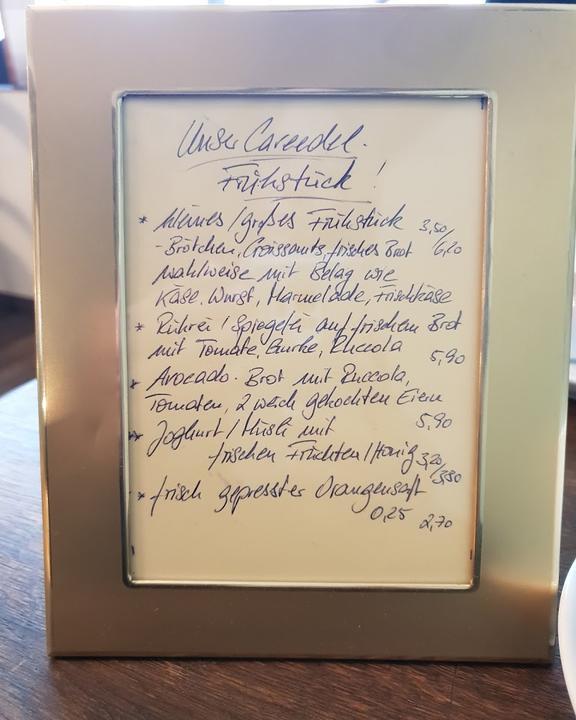 Unser Careedel.
Frühstück!
* kleines/großes Frühstück 3,50/6,20
- Brötchen, Croissants, frisches Brot
wahlweise mit Belag wie
Käse, Wurst, Marmelade, Frischkäse
* Rührei/Spiegelei auf frischem Brot
mit Tomate, Gurke, Ruccola 5,90
* Avocado-Brot mit Ruccola,
Tomaten, 2 weich gekochten Eiern
5,90
* Joghurt/Müsli mit
frischen Früchten/Honig 3,20/3,80
* frisch gepresster Orangensaft
0,25 2,70